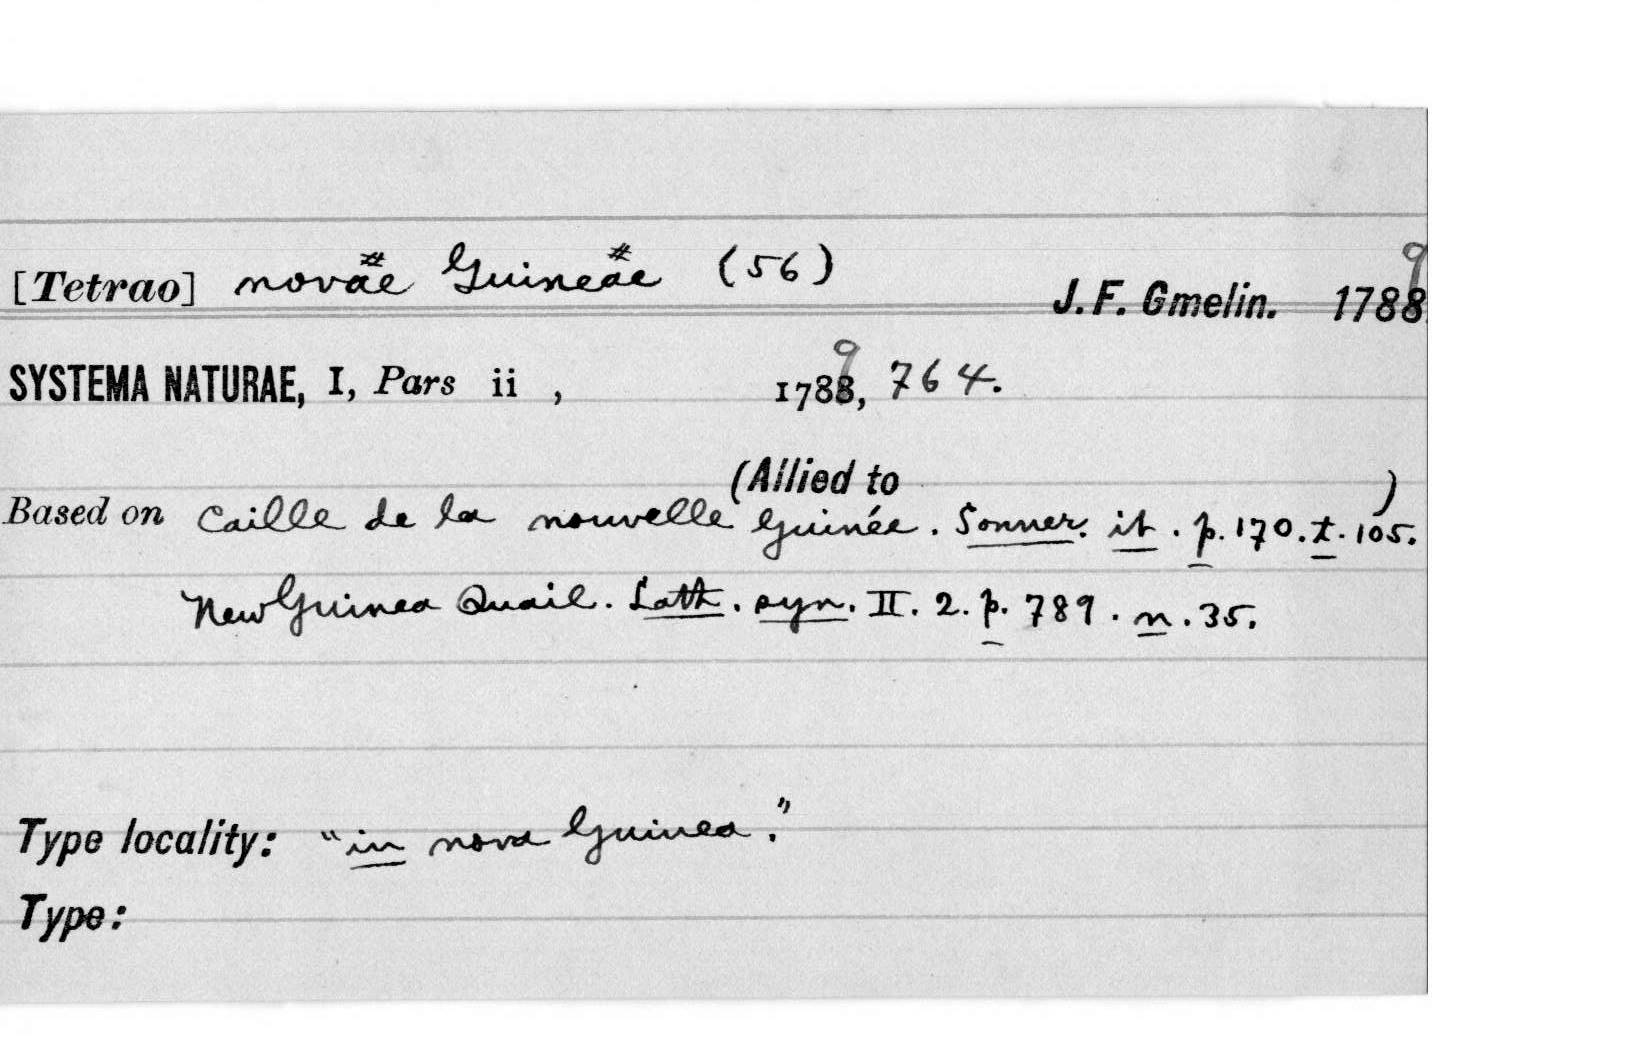 [Tetrao] novae Guineae (56)
J. F. Gmelin. 1789
SYSTEMA NATURAE, I, Pars ii , 1789, 764.
(Allied to )
Based on Caille de la nouvelle Guinée. Sonner. it. p. 170. t. 105.
New Guinea Quail. Lath. syn. II. 2. p. 789. n. 35.
Type locality: "in nova Guinea."
Type: